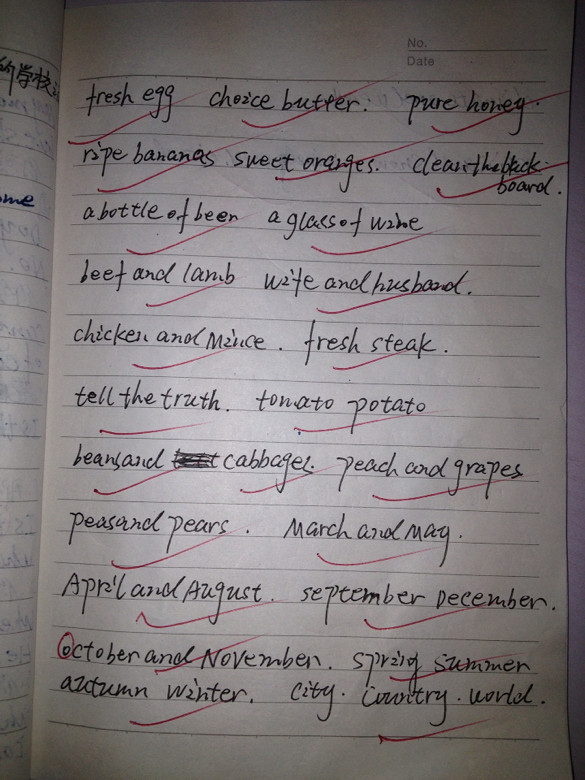 No.
Date
的学校
ome
fresh egg choice butter. pure honey.
ripe bananas sweet oranges. clean the black-
board.
a bottle of beer a glass of wine
beef and lamb wife and husband.
chicken and Mince. fresh steak.
tell the truth. tomato potato
beans and cabbages. peach and grapes
peas and pears. March and May.
April and August. september December.
October and November. spring summer
autumn winter. city. country. world.